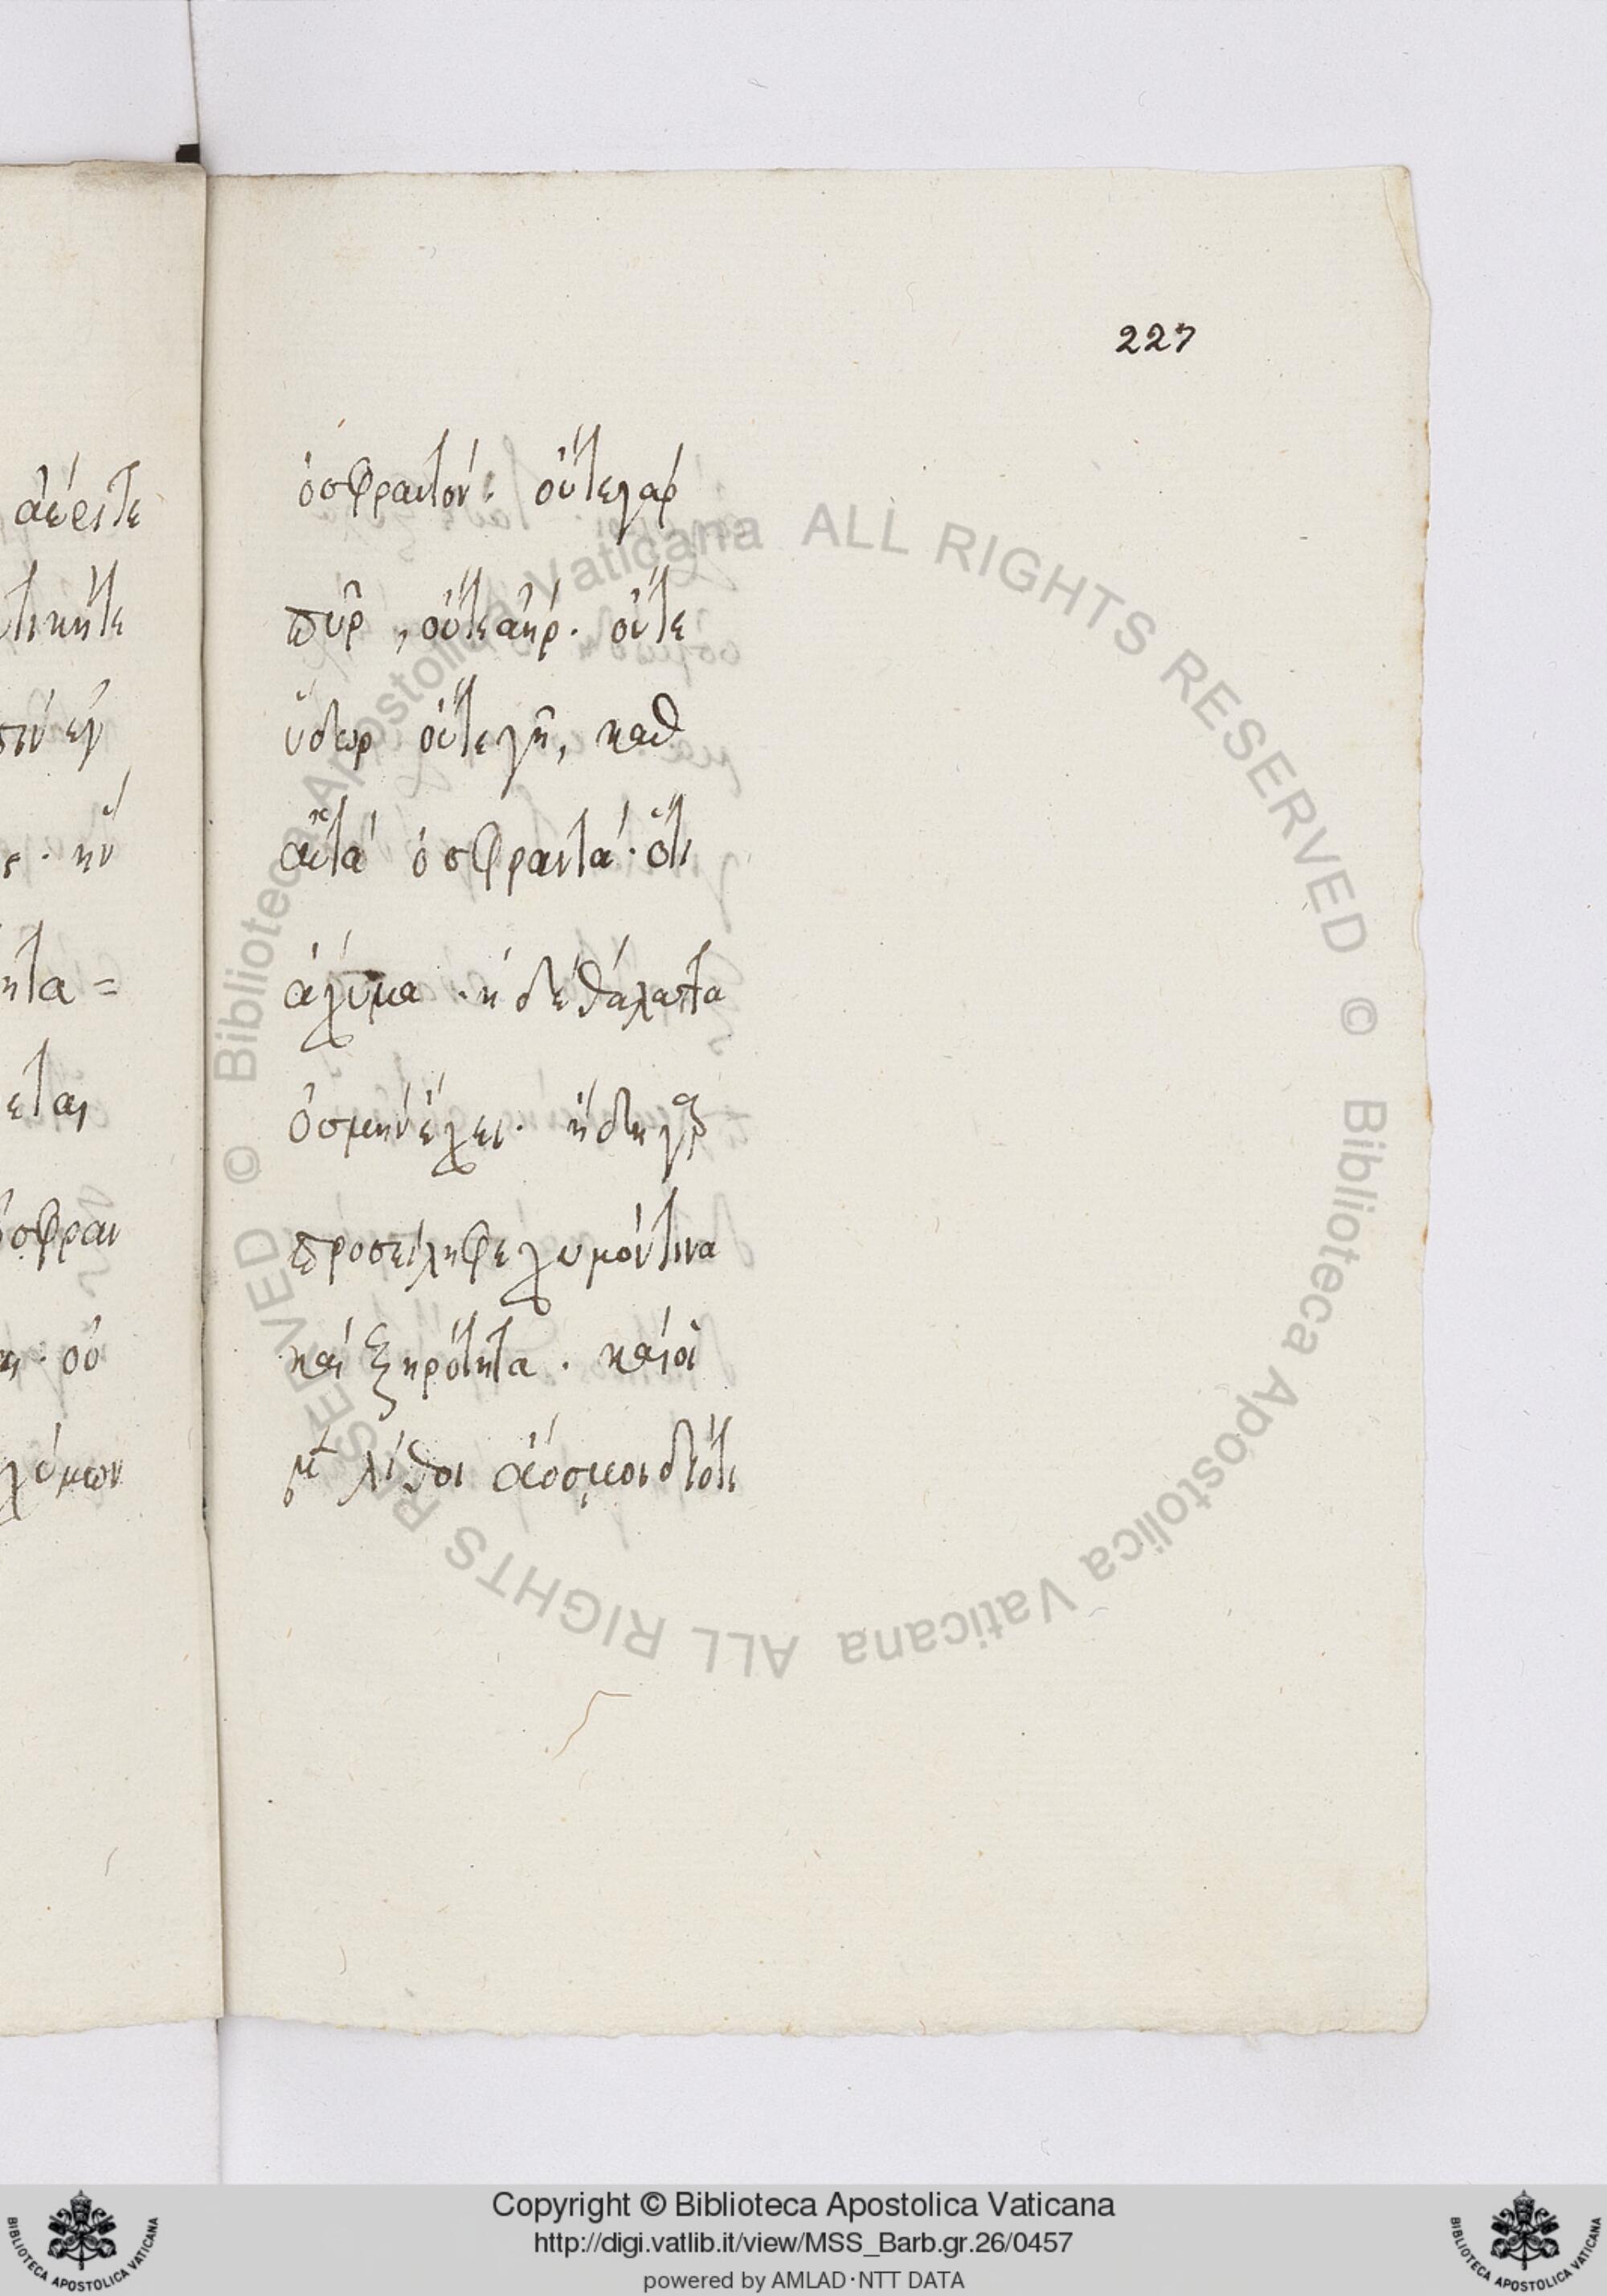 227
ὀσφραντόν· οὔτε γὰρ
πῦρ, οὔτε ἀήρ· οὔτε
ὕδωρ οὔτε γῆ, καθ
αὑτὰ ὀσφραντά· ὅτι
ἄχυμα· ἡ δὲ θάλαττα
ὀσμὴν ἔχει· ἤδη γὰρ
προσείληφε χυμόν τινα
καὶ ξηρότητα· καὶ οἱ
μὲν λίθοι ἄοσμοι διότι
ἀέρι τε
ητα=
εται
ὀσφραν
χύμων
Copyright © Biblioteca Apostolica Vaticana
http://digi.vatlib.it/view/MSS_Barb.gr.26/0457
powered by AMLAD·NTT DATA
© Biblioteca Apostolica Vaticana ALL RIGHTS RESERVED © Biblioteca Apostolica Vaticana ALL RIGHTS RESERVED
BIBLIOTECA APOSTOLICA VATICANA
BIBLIOTECA APOSTOLICA VATICANA